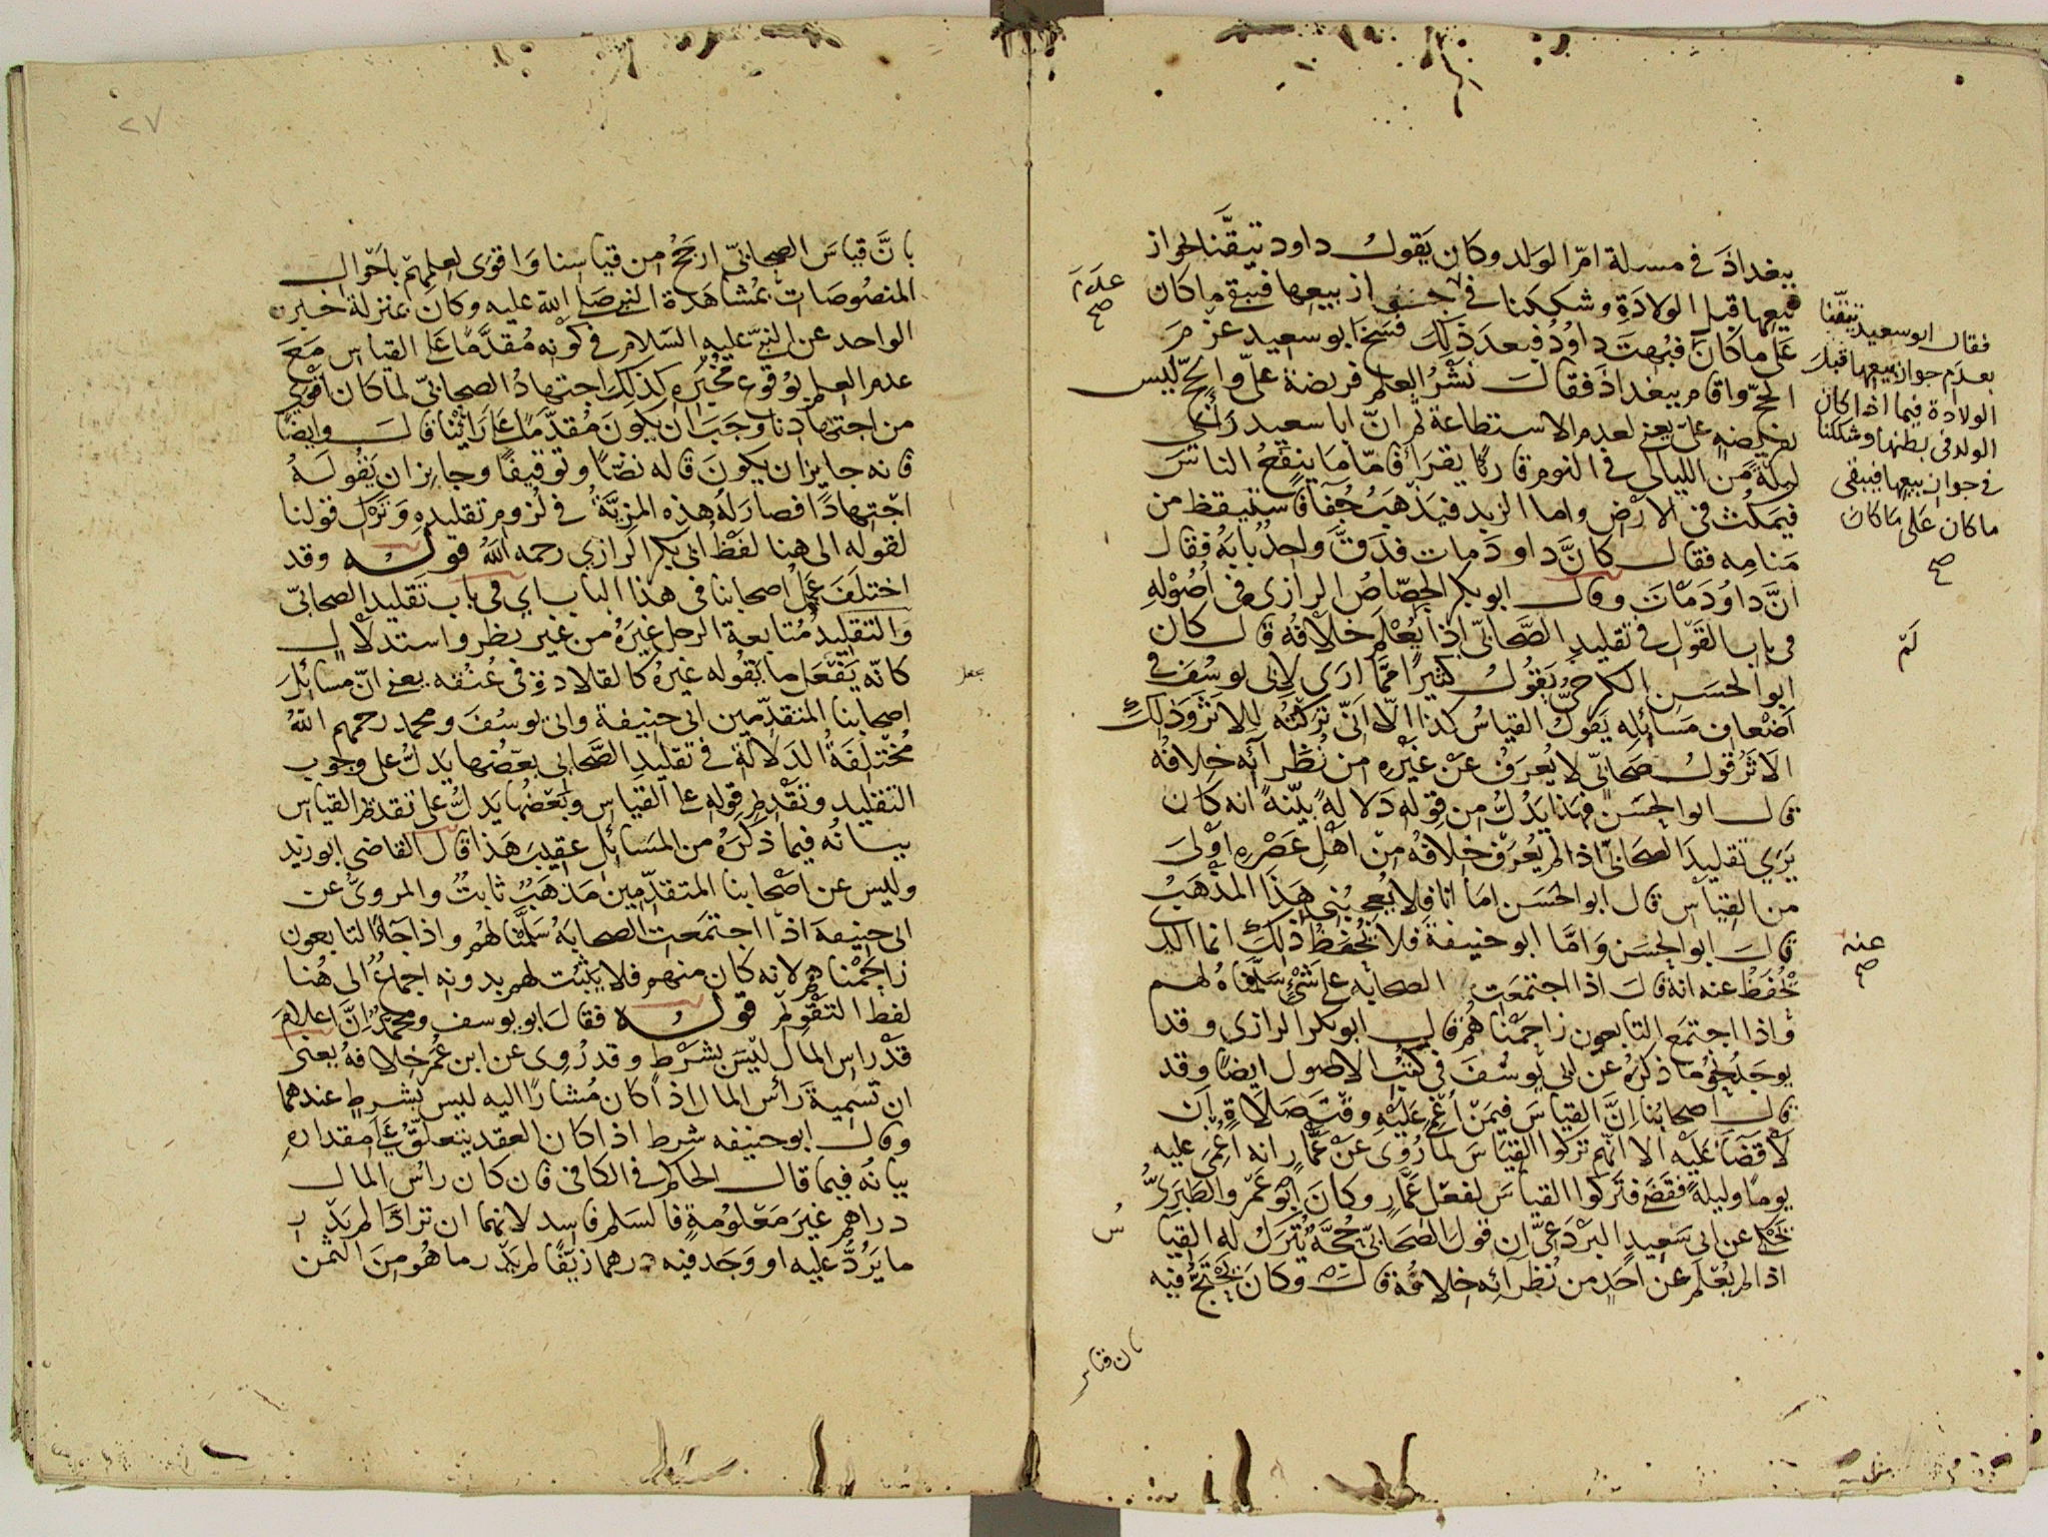 ببغداذ في مسلة امّ الولد وكان يَقول داود تيقّنا لجواز
بيعها قبل الولادَةِ وشككنا في جـــــواز بيعها فبقي ما كان
عَلَى ما كانَ فبُهِتَ داوُدُ فبعدَ ذلك فسَخَ ابو سعيد عزْمَ
الحجّ واقام ببغداذَ فقالَ نَشْرُ العلم فريضة علىّ والحجّ ليس
بفريضةٍ علىّ يعني لعدم الاستطاعة ثم انّ ابا سعيد رأى
ليلةً من الليالي في النوم قاريًا يقرَأ فامّا ما ينفَعُ الناسَ
فيمكثُ في الارْض واما الزبد فيذهَبُ جُفَآءً فاستيقظ من
مَنامه فقال كانَّ داودَ مات فدقَّ واحدٌ بابَهُ فقال
انَّ داوُدَ مْاتَ وقال ابو بكر الجصّاصُ الرازي في اُصُوْلِهِ
في باب القَوْل في تقليدِ الصَّحابيّ اذا يُعْلَم خلافُه قال كان
ابو الحسَن الكرخيُّ يَقُولُ كثيرًا ممَّا ارَى لابي يوسُفَ في
اَضْعاف مَسَائِلِه يَقولُ القياسُ كذا الّا انّى تركتُه للاثَر وذلك
الاثَرُ قولُ صَحابيّ لا يُعرَفُ عَنْ غَيْرِهِ من نُظَرآئِه خِلافُه
قال ابو الحسَن فهذا يَدُلُّ من قولِه دَلالةً بيّنةً انه كان
يَرَى تقليدَ الصحَابيّ اذا لم يُعرَف خلافُه مِنْ اهْلِ عَصْرِهِ اَوْلَى
من القِيَاس قال ابو الحَسَن امَا انا فلا يُعجِبُنى هَذَا المذْهَبُ
قالَ ابو الحسَن وَامَّا ابو حنيفة فلا يُحْفَظُ ذلك انما الذي
يُحْفَظُ عنه انهُ قالَ اذا اجتمعَتِ الصحابه على شَيْءٍ سَلَّمْناهُ لهم
وَاذا اجتمَع التابعون زاحَمْناهُمْ قال ابو بكر الرازي وقد
يوجَدُ نحوُ ما ذكرهُ عن ابى يُوسُفَ فى كتُبُ الاصول ايضًا وقد
قال اَصحابُنا اِنَّ القياسَ فيمَنْ اُغْمِيَ عَلَيْهِ وَقْتَ صَلَاةٍ اَن
لَا قَضَآءَ عَلَيْه الا انّهم تركوا القيَاسَ لما رُوِىَ عَنْ عَمَّارٍ انه اُغْمِىَ عليه
يومًا وليلةً فقضَى فتَركوا القياسَ لفعْلِ عَمَّارٍ وكانَ اَبُو عَمْرٍو الطَبَرىُّ
يَحْكى عن ابى سَعِيدٍ البَرْدَعىّ ان قولَ الصَحَابىّ حُجَّةٌ يُتْرَكُ له القيا
س
اذا لم يُعْلَم عن اَحَدٍ من نُظَرآئِه خِلافُهُ قال وكانَ يَحْتَجُّ فيه
بان قياس
علَى مَ
صح
فقال ابو سعيد تيقّنا
بعدَم جواز بيعها قبل
الولادة فيما اذا كان
الولد فى بطنها وشككنا
فى جواز بيعها فيبقى
ما كان عَلَى مَا كان
صح
لَمْ
عنه
صح
٢٧
بانَّ قياسَ الصحابيّ ارجَحُ من قياسنا وَاقوَى لعِلمِهِمْ باَحْوال
المنصُوصَات بمُشاهَدة النبىّ صلى الله عليه وكانَ بمنزلة خبر
الواحد عن النبىّ عليه السَلام فى كونه مُقدَّمًا على القياس مَعَ
عدم العلم بوُقوع مخبَرِهِ كذلك اجتهادُ الصحابىّ لما كان اقوَى
من اجتهادنا وجَبَ ان يكونَ مُقدَّمًا على رَأيْنا قالَ وايضًا
فانه جايز ان يكونَ قاله نصًّا وتوقيفًا وجايز ان يَقُولَهُ
اجْتهادًا فصارَ لهُ هذه المزيَّةُ فى لزوم تقليدِهِ وَتَرْك قولنا
لقوله الى هنا لفظُ ابى بكر الرازي رحمه اللهُ قوله وقد
اختلفَ عَمَلُ اصحابنا فى هذا الباب اي فى باب تَقليد الصحابىّ
وَالتقليدُ مُتابعة الرجل غيرَهُ من غير نظر واستدلال
كانّه يَفْعَل ما يَقُوله غيرهُ كالقلادةِ فى عُنْقه يعنى انّ مسائلَ
اصحابنا المتقدّمين ابى حنيفة وابى يوسُفَ ومحمد رحمهم اللهُ
مُخْتلفةُ الدَلالة فى تقليدِ الصَّحابى بعَضُها يَدلّ على وجُوب
التقليد وتقْديم قوله على القياس وبَعْضُها يَدلّ على تقديم القياس
بيانُه فيما ذكرَهُ من المسَائِل عقيبَ هَذا قال القاضى ابو زيد
وليس عن اصْحابنا المتقدّمين مَذْهَبٌ ثابتٌ والمروىُّ عن
ابى حنيفة اذا اجتمَعت الصحابهُ سَلَّمْنَا لهُم واذا جَآءَ التابعون
زاحَمْناهُم لانه كان منهم فلا يَثْبُت لهم بدونِه اجماعٌ الى هُنا
لفظ التَقْويم قوله فقالَ ابو يوسف ومحمدٌ اِنَّ اعلامَ
قدْر راس المال ليْسَ بشَرْط وقد رُوى عن ابن عُمَر خلافهُ يعنى
ان تسميةَ رَأس المال اذا كان مُشارًا اليه ليس بشرطٍ عندهما
وقال ابو حنيفه شرط اذا كان العقد يتعلّقُ عَلى مقدارهِ
بيانُه فيما قال الحاكم فى الكافى فان كان راسُ المال
دراهم غيرَ مَعْلوُمةٍ فالسَلم فاسد لانهما ان ترادَّا لم يَدْر
ما يَرُدُّ عليه او وَجَد فيه درهما زيْفًا لم يَدْر ما هُوَ مِنَ الثمن
يجعل